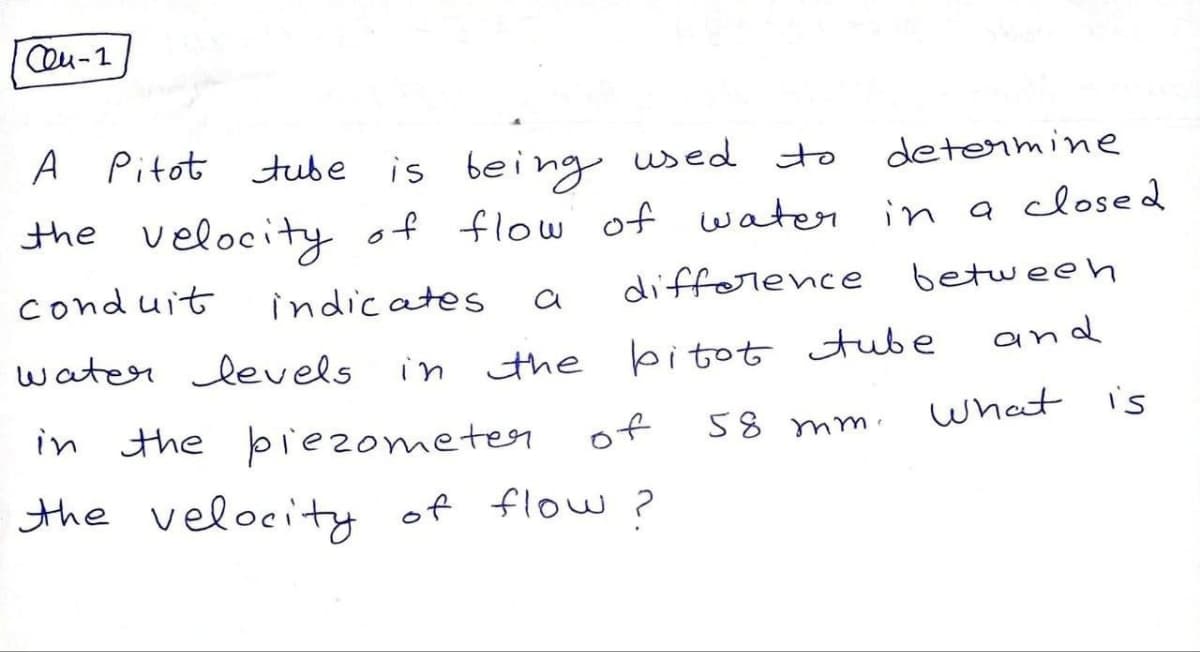 Qu-1
A Pitot tube is being used to determine
the velocity of flow of water in a closed
conduit indicates a difference between
water levels in the pitot tube and
in the piezometer of 58 mm. What is
the velocity of flow ?